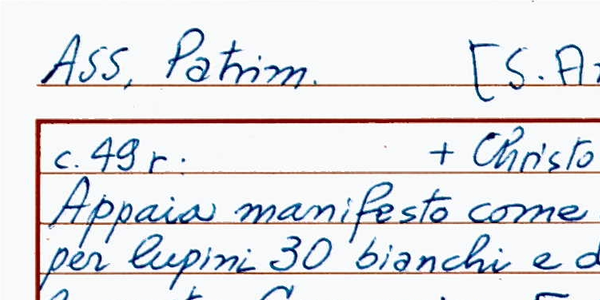 Ass, Patrim. [S. A
c. 49 r. + Christo
Appaia manifesto come
per lupini 30 bianchi e d